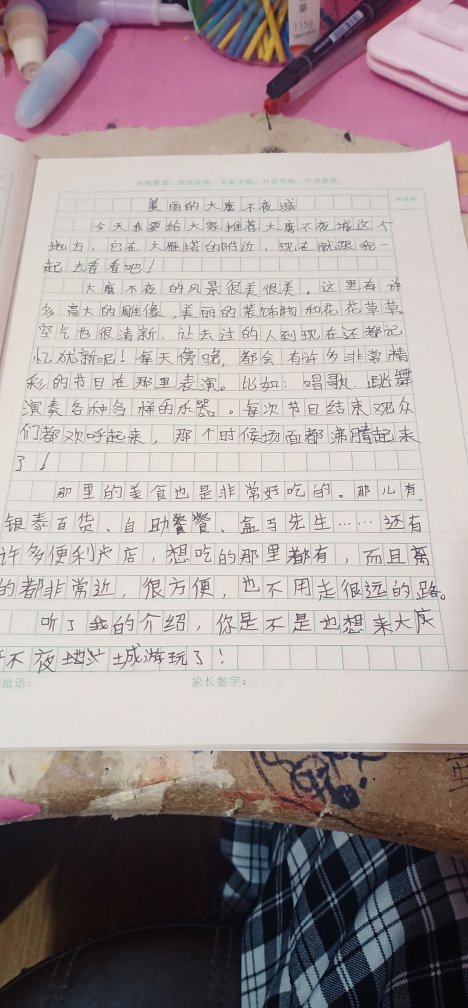 量
115g
美丽的大唐不夜城
今天我要给大家推荐大唐不夜城这个
地方，它在大雁塔的附近，现在就跟我一
起去看看吧！
大唐不夜的风景很美很美。这里有许
多高大的雕像，美丽的装饰物和花花草草。
空气也很清新，让去过的人到现在还都记
忆犹新呢！每天傍晚，都会有许多非常精
彩的节目在那里表演。比如：唱歌、跳舞
演奏各种各样的乐器。每次节目结束观众
们都欢呼起来，那个时候场面都沸腾起来
了！
那里的美食也是非常好吃的。那儿有
银泰百货、自助餐餐、盒马先生……还有
许多便利店，想吃的那里都有，而且离
的都非常近，很方便，也不用走很远的路。
听了我的介绍，你是不是也想来大
不夜城游玩了！
批语：
家长签字：